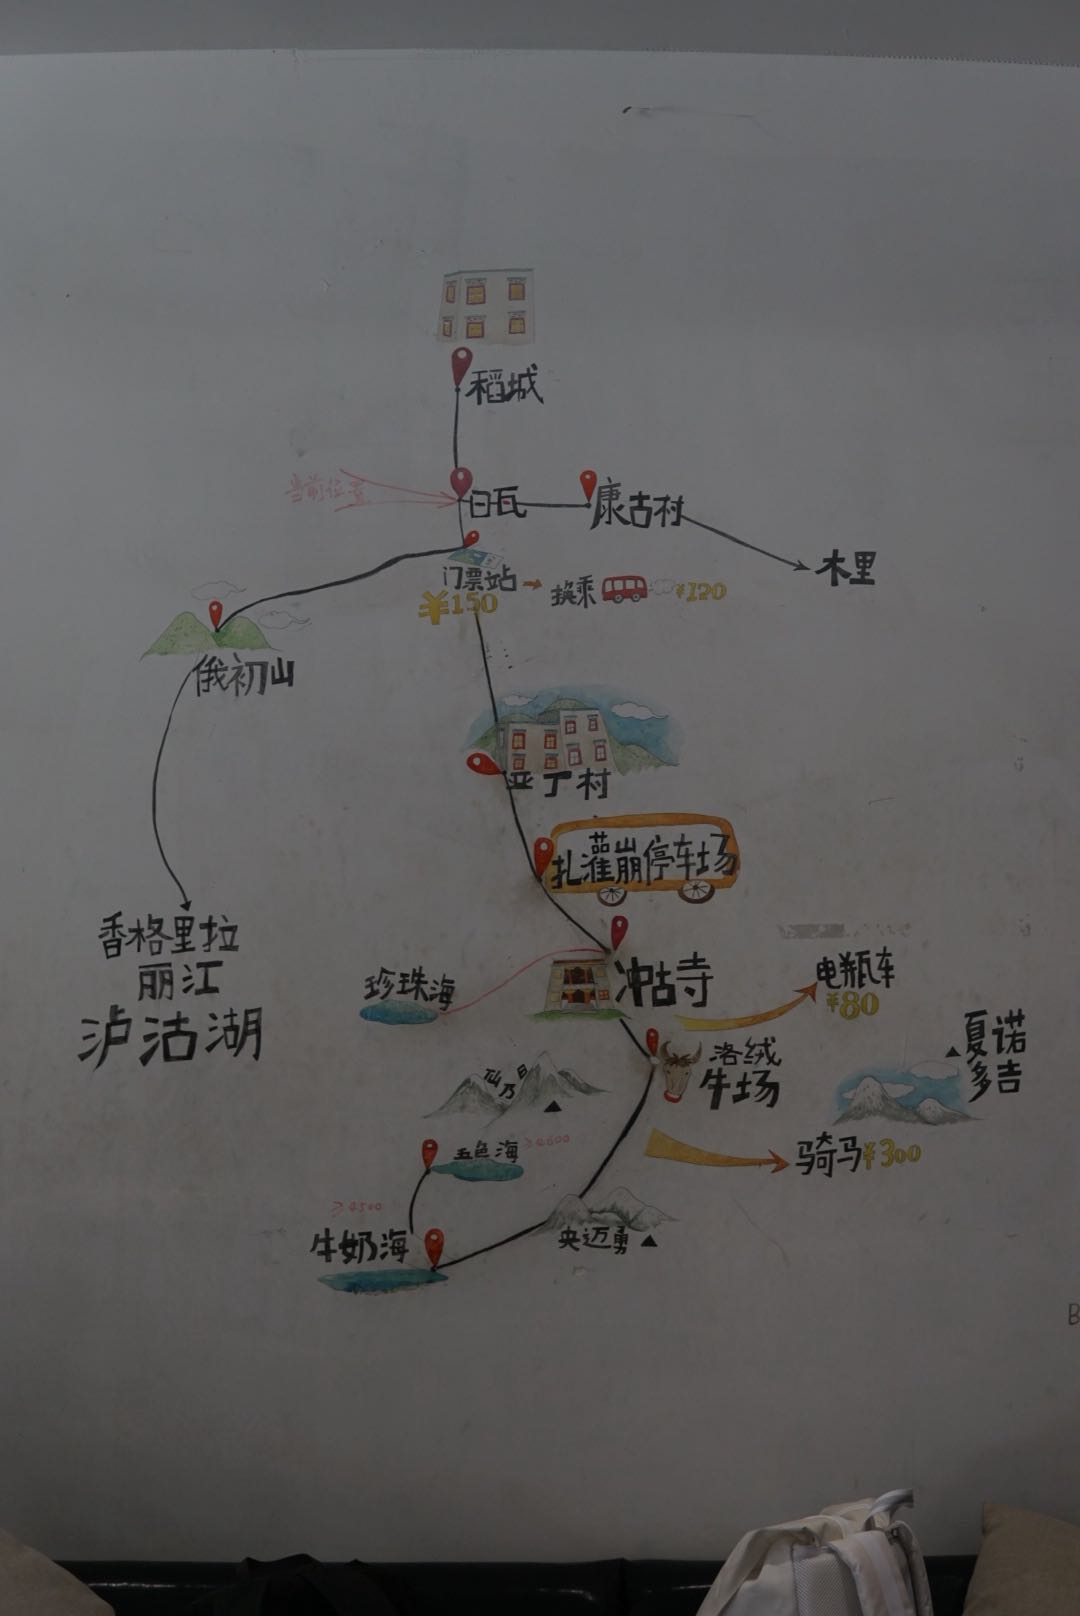 稻城
当前位置
日瓦
康古村
木里
门票站
换乘
¥120
¥150
俄初山
亚丁村
扎灌崩停车场
香格里拉
丽江
泸沽湖
珍珠海
冲古寺
电瓶车
¥80
洛绒
牛场
夏诺
多吉
仙乃日
五色海
≥4600
骑马¥300
≥4500
牛奶海
央迈勇
B